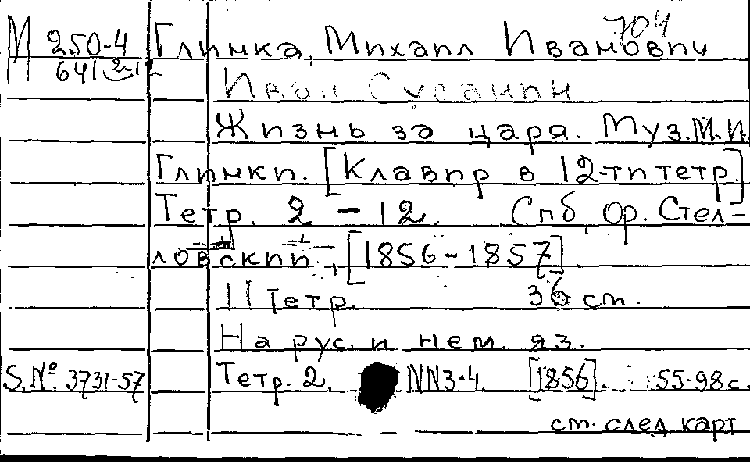 704
М 250-4 Глинка, Михаил Иванович
641 2-12
Иван Сусанин
Жизнь за царя. Муз. М.И.
Глинки. [Клавир в 12-ти тетр.]
Тетр. 2 – 12. Спб, Ф. Стел-
ловский, [1856-1857]
11 тетр. 36 см.
На рус. и нем. яз.
S.№ 3731-57 Тетр. 2. NN3-4. [1856]. 55-98 с.
см. след карт